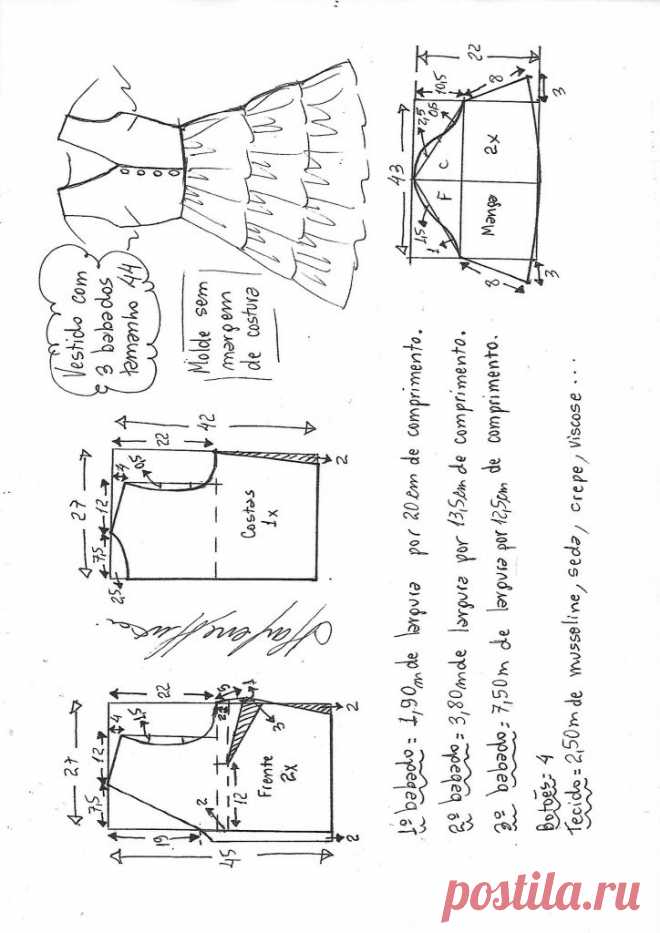 Vestido com
3 babados
tamanho 44
Molde sem
margem
de costura
22
10,5
8
3
0,5
2,5
C
2x
43
F
Manga
1,5
1
8
3
27
7,5
12
4
0,5
22
42
2,5
Costas
1x
2
27
7,5
12
4
1,5
22
19
45
2
12
3
Frente
2x
2
2
1º babado = 1,90m de largura por 20cm de comprimento.
2º babado = 3,80m de largura por 13,5cm de comprimento.
3º babado = 7,50m de largura por 12,5cm de comprimento.
Botões = 4
Tecido = 2,50m de mussoline, seda, crepe, viscose ...
postila.ru